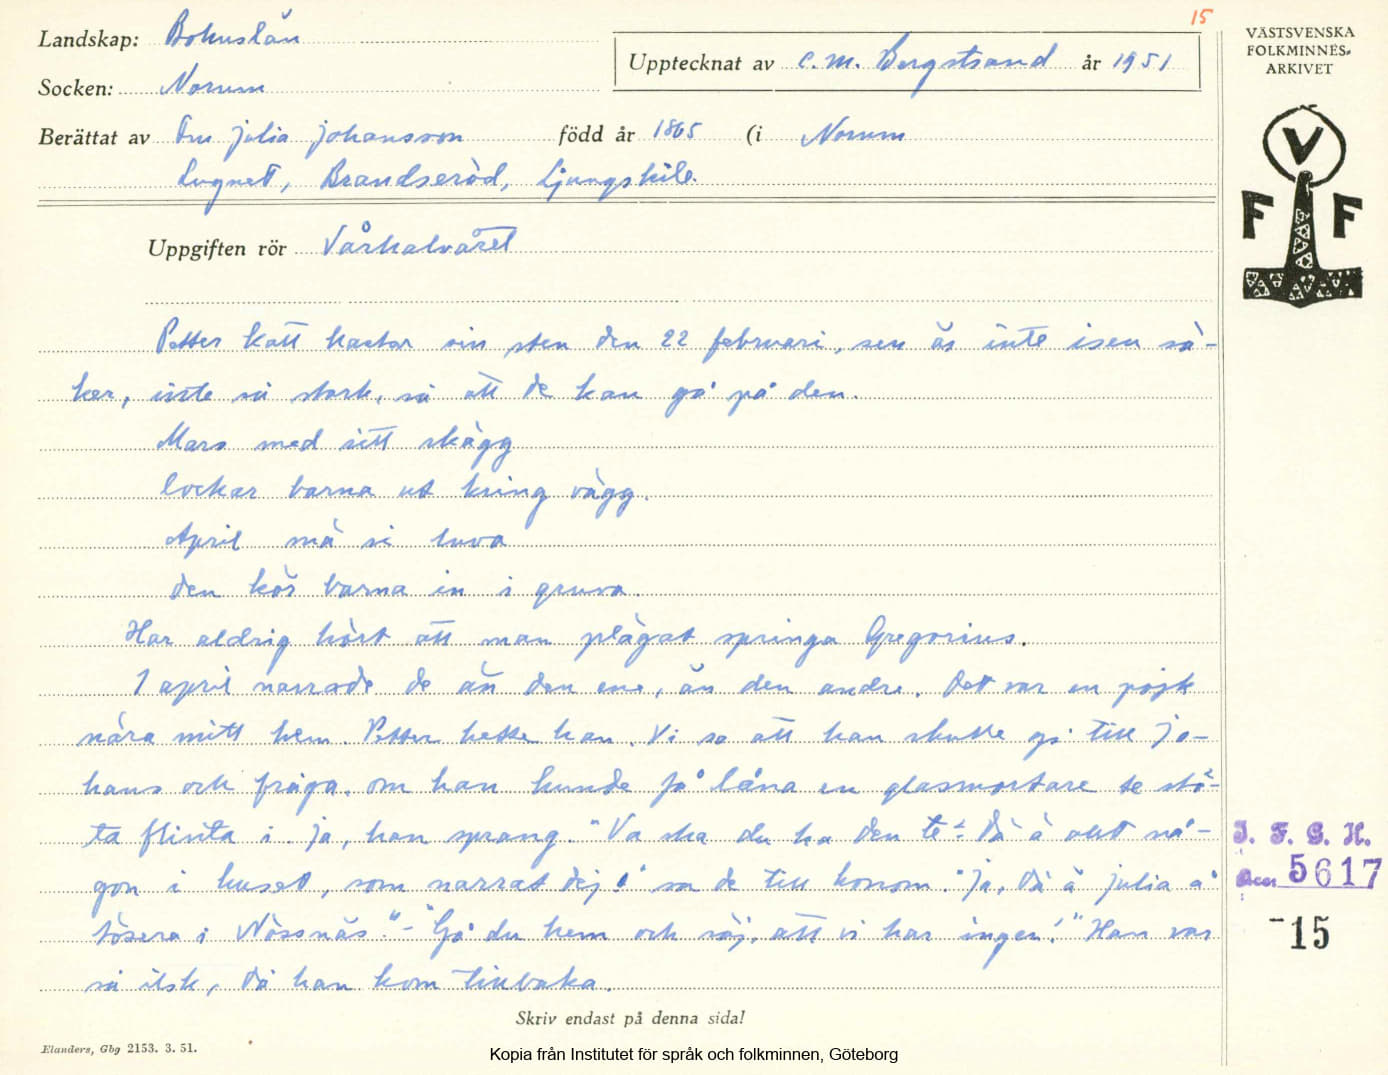 15
Landskap: Bohuslän
Upptecknat av C. M. Bergstrand år 1951
Socken: Norum
Berättat av Fru Julia Johansson född år 1865 (i Norum
Lugnet, Brandseröd, Ljungskile.
VÄSTSVENSKA
FOLKMINNES-
ARKIVET
V
F F
Uppgiften rör Vårhalvåret
Petter Katt kastar sin sten den 22 februari, sen är inte isen sä-
ker, inte så stark, så att de kan gå på den.
Mars med sitt skägg
lockar barna ut kring vägg.
April mä si luva
den kör barna in i gruva.
Har aldrig hört att man plägat springa Gregorius.
1 april narrade de än den ene, än den andre. Det var en pojk
nära mitt hem. Petter hette han. Vi sa att han skulle gå till Jo-
hans och fråga, om han kunde få låna en glasmortare te stö-
ta flinta i. Ja, han sprang. "Va ska du ha den te? Dä ä allt nå-
gon i huset, som narrat dej!" sa de till honom. "Ja, dä ä Julia å
tösera i Nössnäs." - "Gå du hem och säj, att vi har ingen!" Han var
så ilsk, då han kom tillbaka.
I. F. G. H.
Acc 5617
-15
Skriv endast på denna sida!
Elanders, Gbg 2153. 3. 51.
Kopia från Institutet för språk och folkminnen, Göteborg